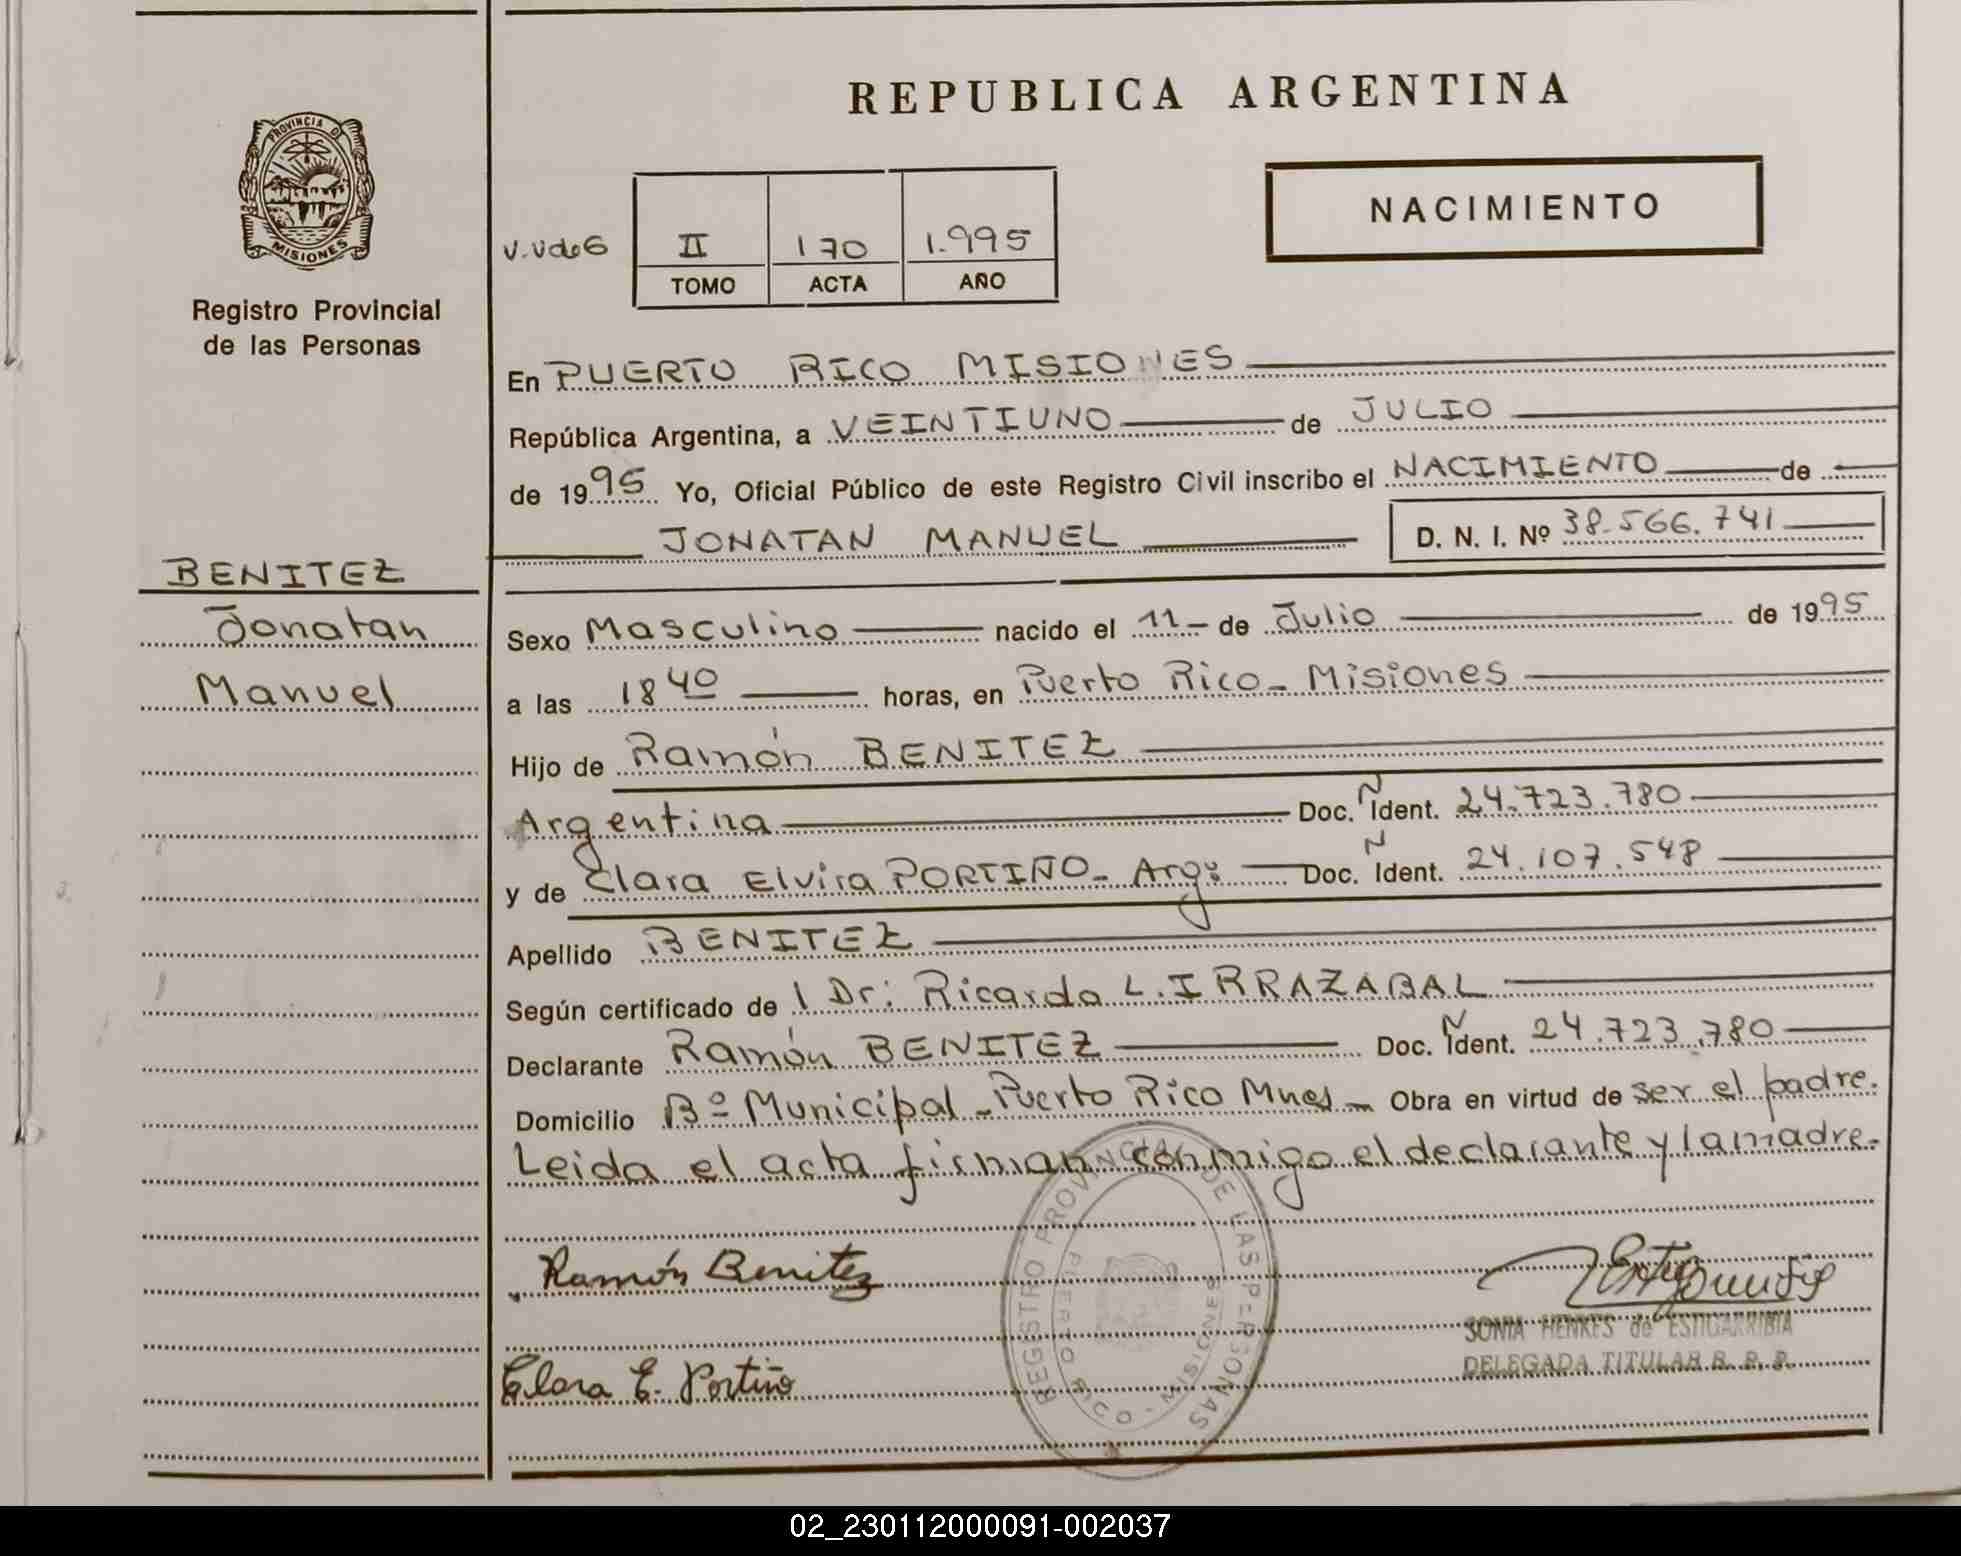 PROVINCIA DE
MISIONES
Registro Provincial
de las Personas
BENITEZ
Jonatan
Manuel
REPUBLICA ARGENTINA
NACIMIENTO
II 170 1.995
TOMO ACTA AÑO
En PUERTO RICO MISIONES
República Argentina, a VEINTIUNO de JULIO
de 1995 Yo, Oficial Público de este Registro Civil inscribo el NACIMIENTO de
JONATAN MANUEL D. N. I. Nº 38.566.741
Sexo Masculino nacido el 11 - de Julio de 1995
a las 18 40 horas, en Puerto Rico - Misiones
Hijo de Ramón BENITEZ
Argentina Doc. N Ident. 24.723.780
y de Clara Elvira PORTIÑO - Arg: Doc. N Ident. 24.107.548
Apellido BENITEZ
Según certificado de l Dr: Ricardo L. IRRAZABAL
Declarante Ramón BENITEZ Doc. N Ident. 24.723.780
Domicilio Bº Municipal - Puerto Rico Mnes - Obra en virtud de ser el padre.
Leida el acta firman conmigo el declarante y la madre.-
Ramón Benitez
Clara E. Portiño
REGISTRO PROVINCIAL DE LAS PERSONAS
PUERTO RICO - MISIONES
SONIA HENKES de ESTIGARRIBIA
DELEGADA TITULAR R. P. P.
02_230112000091-002037